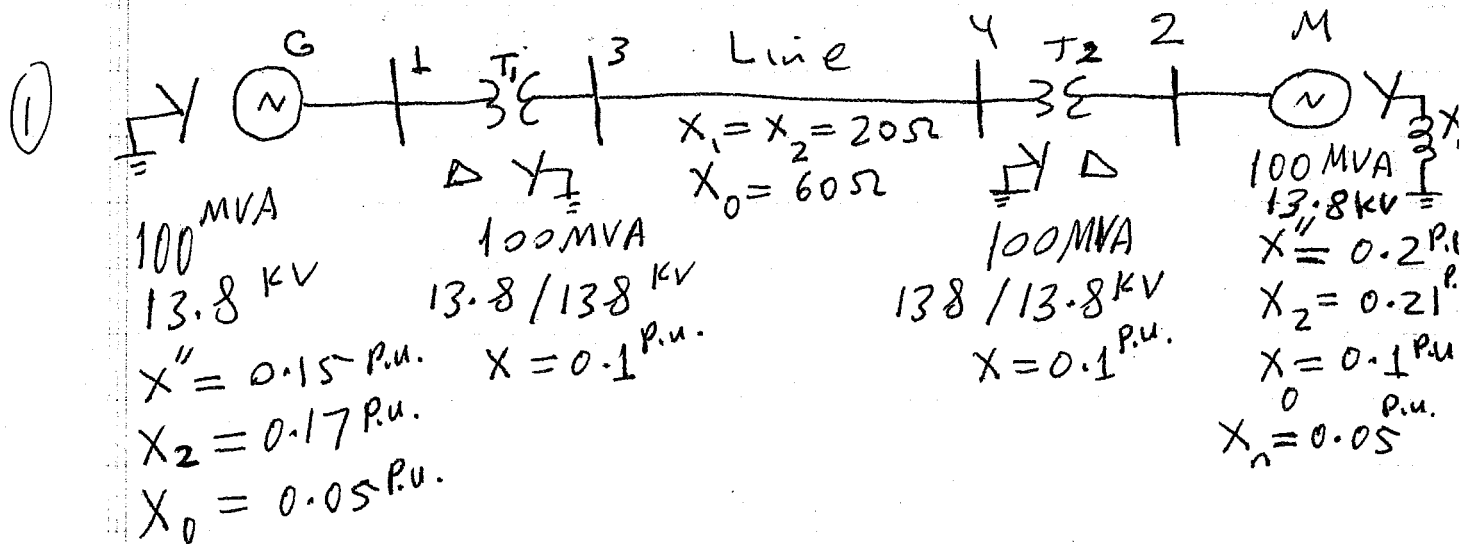 ①
G 1 T₁ 3 Line 4 T2 2 M
X₁ = X₂ = 20Ω
X₀ = 60Ω
Δ Y
Y Δ
100 MVA
13.8 KV
X" = 0.15 P.u.
X₂ = 0.17 P.u.
X₀ = 0.05 P.u.
100MVA
13.8 / 138 KV
X = 0.1 P.u.
100MVA
138 / 13.8KV
X = 0.1 P.u.
100 MVA
13.8 KV
X" = 0.2 P.
X₂ = 0.21 P.
X₀ = 0.1 P.u
Xₙ = 0.05 P.u.